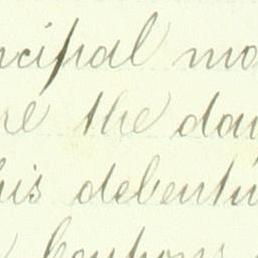 ncipal mo
re the da
his debentu
coupons